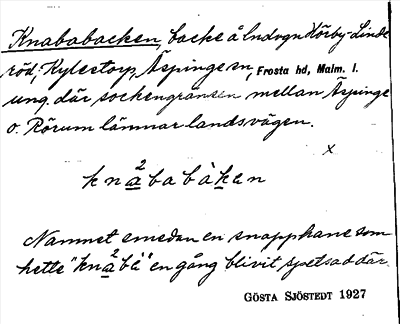 Knababacken, backe å lndvgn Hörby-Linde
röd; Kylestorp, Äspinge sn, Frosta hd, Malm. l.
ung. där sockengränsen mellan Äspinge
o. Rörum lämnar landsvägen.
x
kna²babàken
Namnet emedan en snapphane som
hette "kna²bà" en gång blivit spetsad där.
GÖSTA SJÖSTEDT 1927